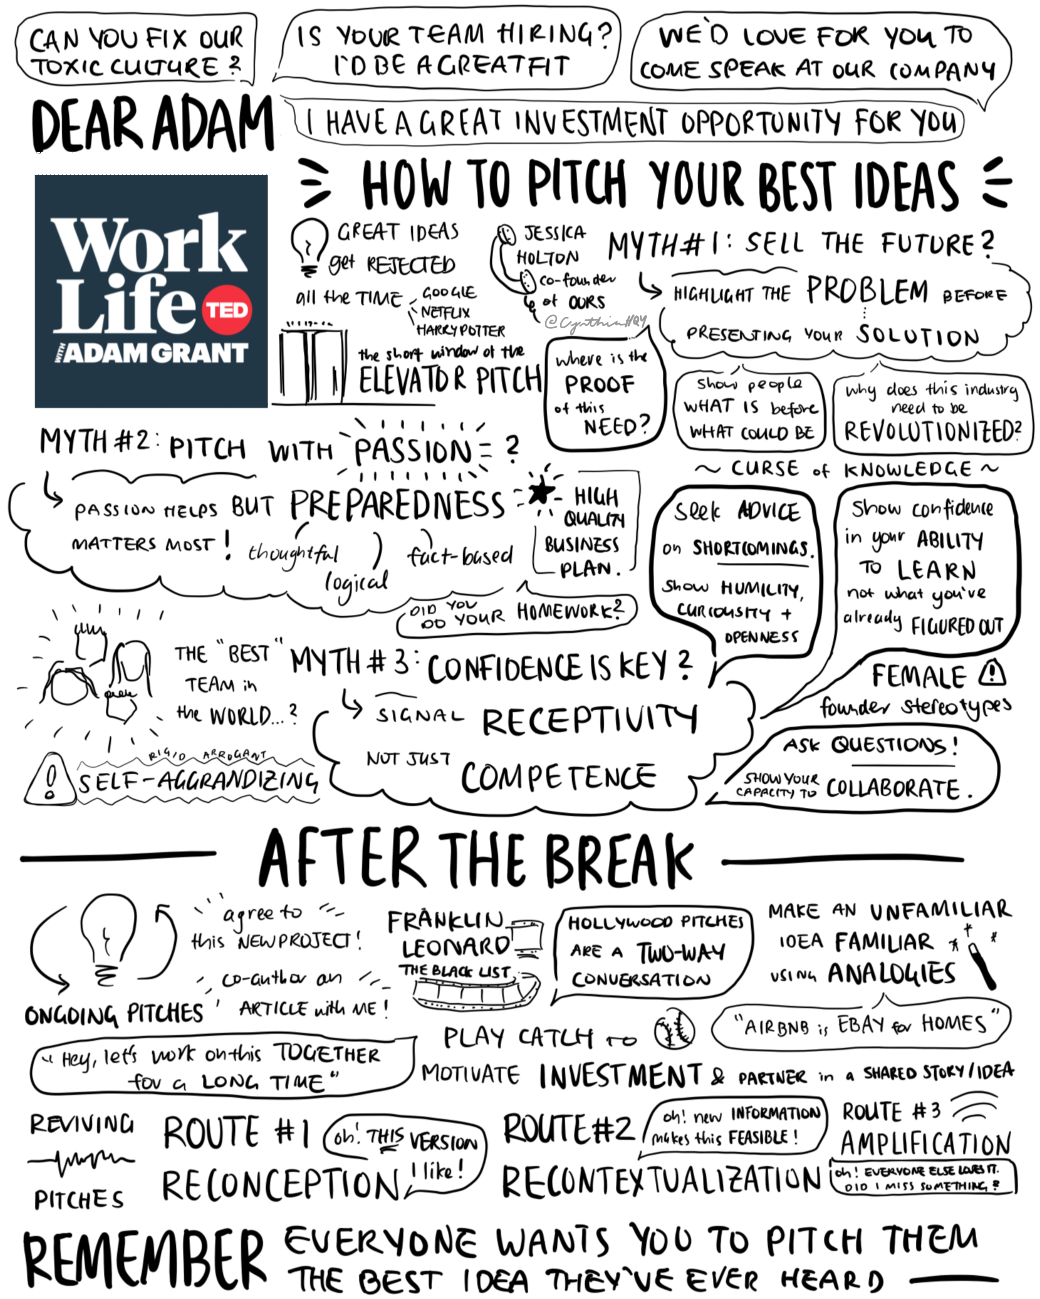 CAN YOU FIX OUR
TOXIC CULTURE?
IS YOUR TEAM HIRING?
I'D BE A GREAT FIT
WE'D LOVE FOR YOU TO
COME SPEAK AT OUR COMPANY
DEAR ADAM
I HAVE A GREAT INVESTMENT OPPORTUNITY FOR YOU
HOW TO PITCH YOUR BEST IDEAS
Work
Life
TED
WITH ADAM GRANT
GREAT IDEAS
get REJECTED
all the TIME
GOOGLE
NETFLIX
HARRY POTTER
JESSICA
HOLTON
co-founder
of OURS
@CynthiaHQ4
the short window of the
ELEVATOR PITCH
MYTH #1: SELL THE FUTURE?
HIGHLIGHT THE PROBLEM BEFORE
PRESENTING YOUR SOLUTION
where is the
PROOF
of this
NEED?
Show people
WHAT IS before
WHAT COULD BE
why does this industry
need to be
REVOLUTIONIZED?
MYTH #2: PITCH WITH PASSION?
PASSION HELPS BUT PREPAREDNESS
MATTERS MOST!
thoughtful
logical
fact-based
HIGH
QUALITY
BUSINESS
PLAN.
DID YOU
DO YOUR HOMEWORK?
~ CURSE of KNOWLEDGE ~
Seek ADVICE
on SHORTCOMINGS.
Show HUMILITY,
CURIOUSITY +
OPENNESS
Show confidence
in your ABILITY
TO LEARN
not what you've
already FIGURED OUT
THE "BEST"
TEAM in
the WORLD...?
RIGID ARROGANT
SELF-AGGRANDIZING
MYTH #3: CONFIDENCE IS KEY?
SIGNAL RECEPTIVITY
NOT JUST COMPETENCE
FEMALE
founder stereotypes
ASK QUESTIONS!
SHOW YOUR
CAPACITY TO COLLABORATE.
AFTER THE BREAK
ONGOING PITCHES
agree to
this NEW PROJECT!
co-author an
ARTICLE with ME!
"Hey, let's work on this TOGETHER
for a LONG TIME"
FRANKLIN
LEONARD
THE BLACK LIST
HOLLYWOOD PITCHES
ARE A TWO-WAY
CONVERSATION
MAKE AN UNFAMILIAR
IDEA FAMILIAR
USING ANALOGIES
"AIRBNB is EBAY for HOMES"
PLAY CATCH TO
MOTIVATE INVESTMENT & PARTNER in a SHARED STORY/IDEA
REVIVING
PITCHES
ROUTE #1
RECONCEPTION
oh! THIS VERSION
I like!
ROUTE #2
RECONTEXTUALIZATION
oh! new INFORMATION
makes this FEASIBLE!
ROUTE #3
AMPLIFICATION
oh! EVERYONE ELSE LOVES IT.
DID I MISS SOMETHING?
REMEMBER
EVERYONE WANTS YOU TO PITCH THEM
THE BEST IDEA THEY'VE EVER HEARD